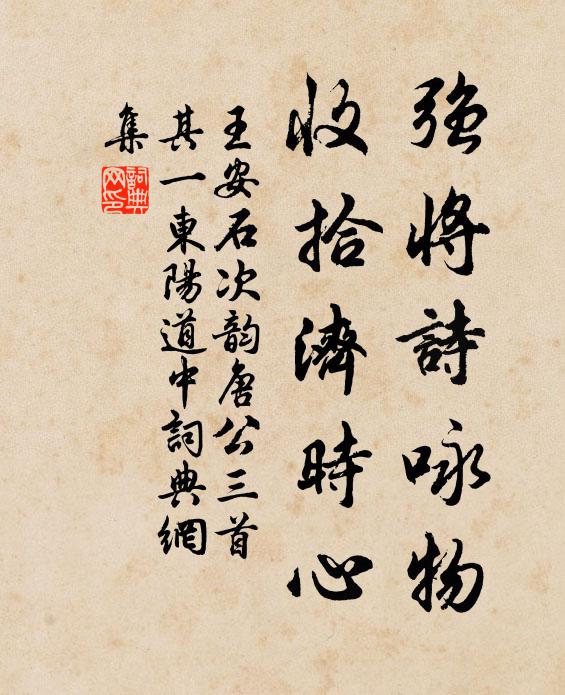 強將詩咏物
收拾濟時心
王安石次韵唐公三首
其一東陽道中詞典網
集
詞典網印